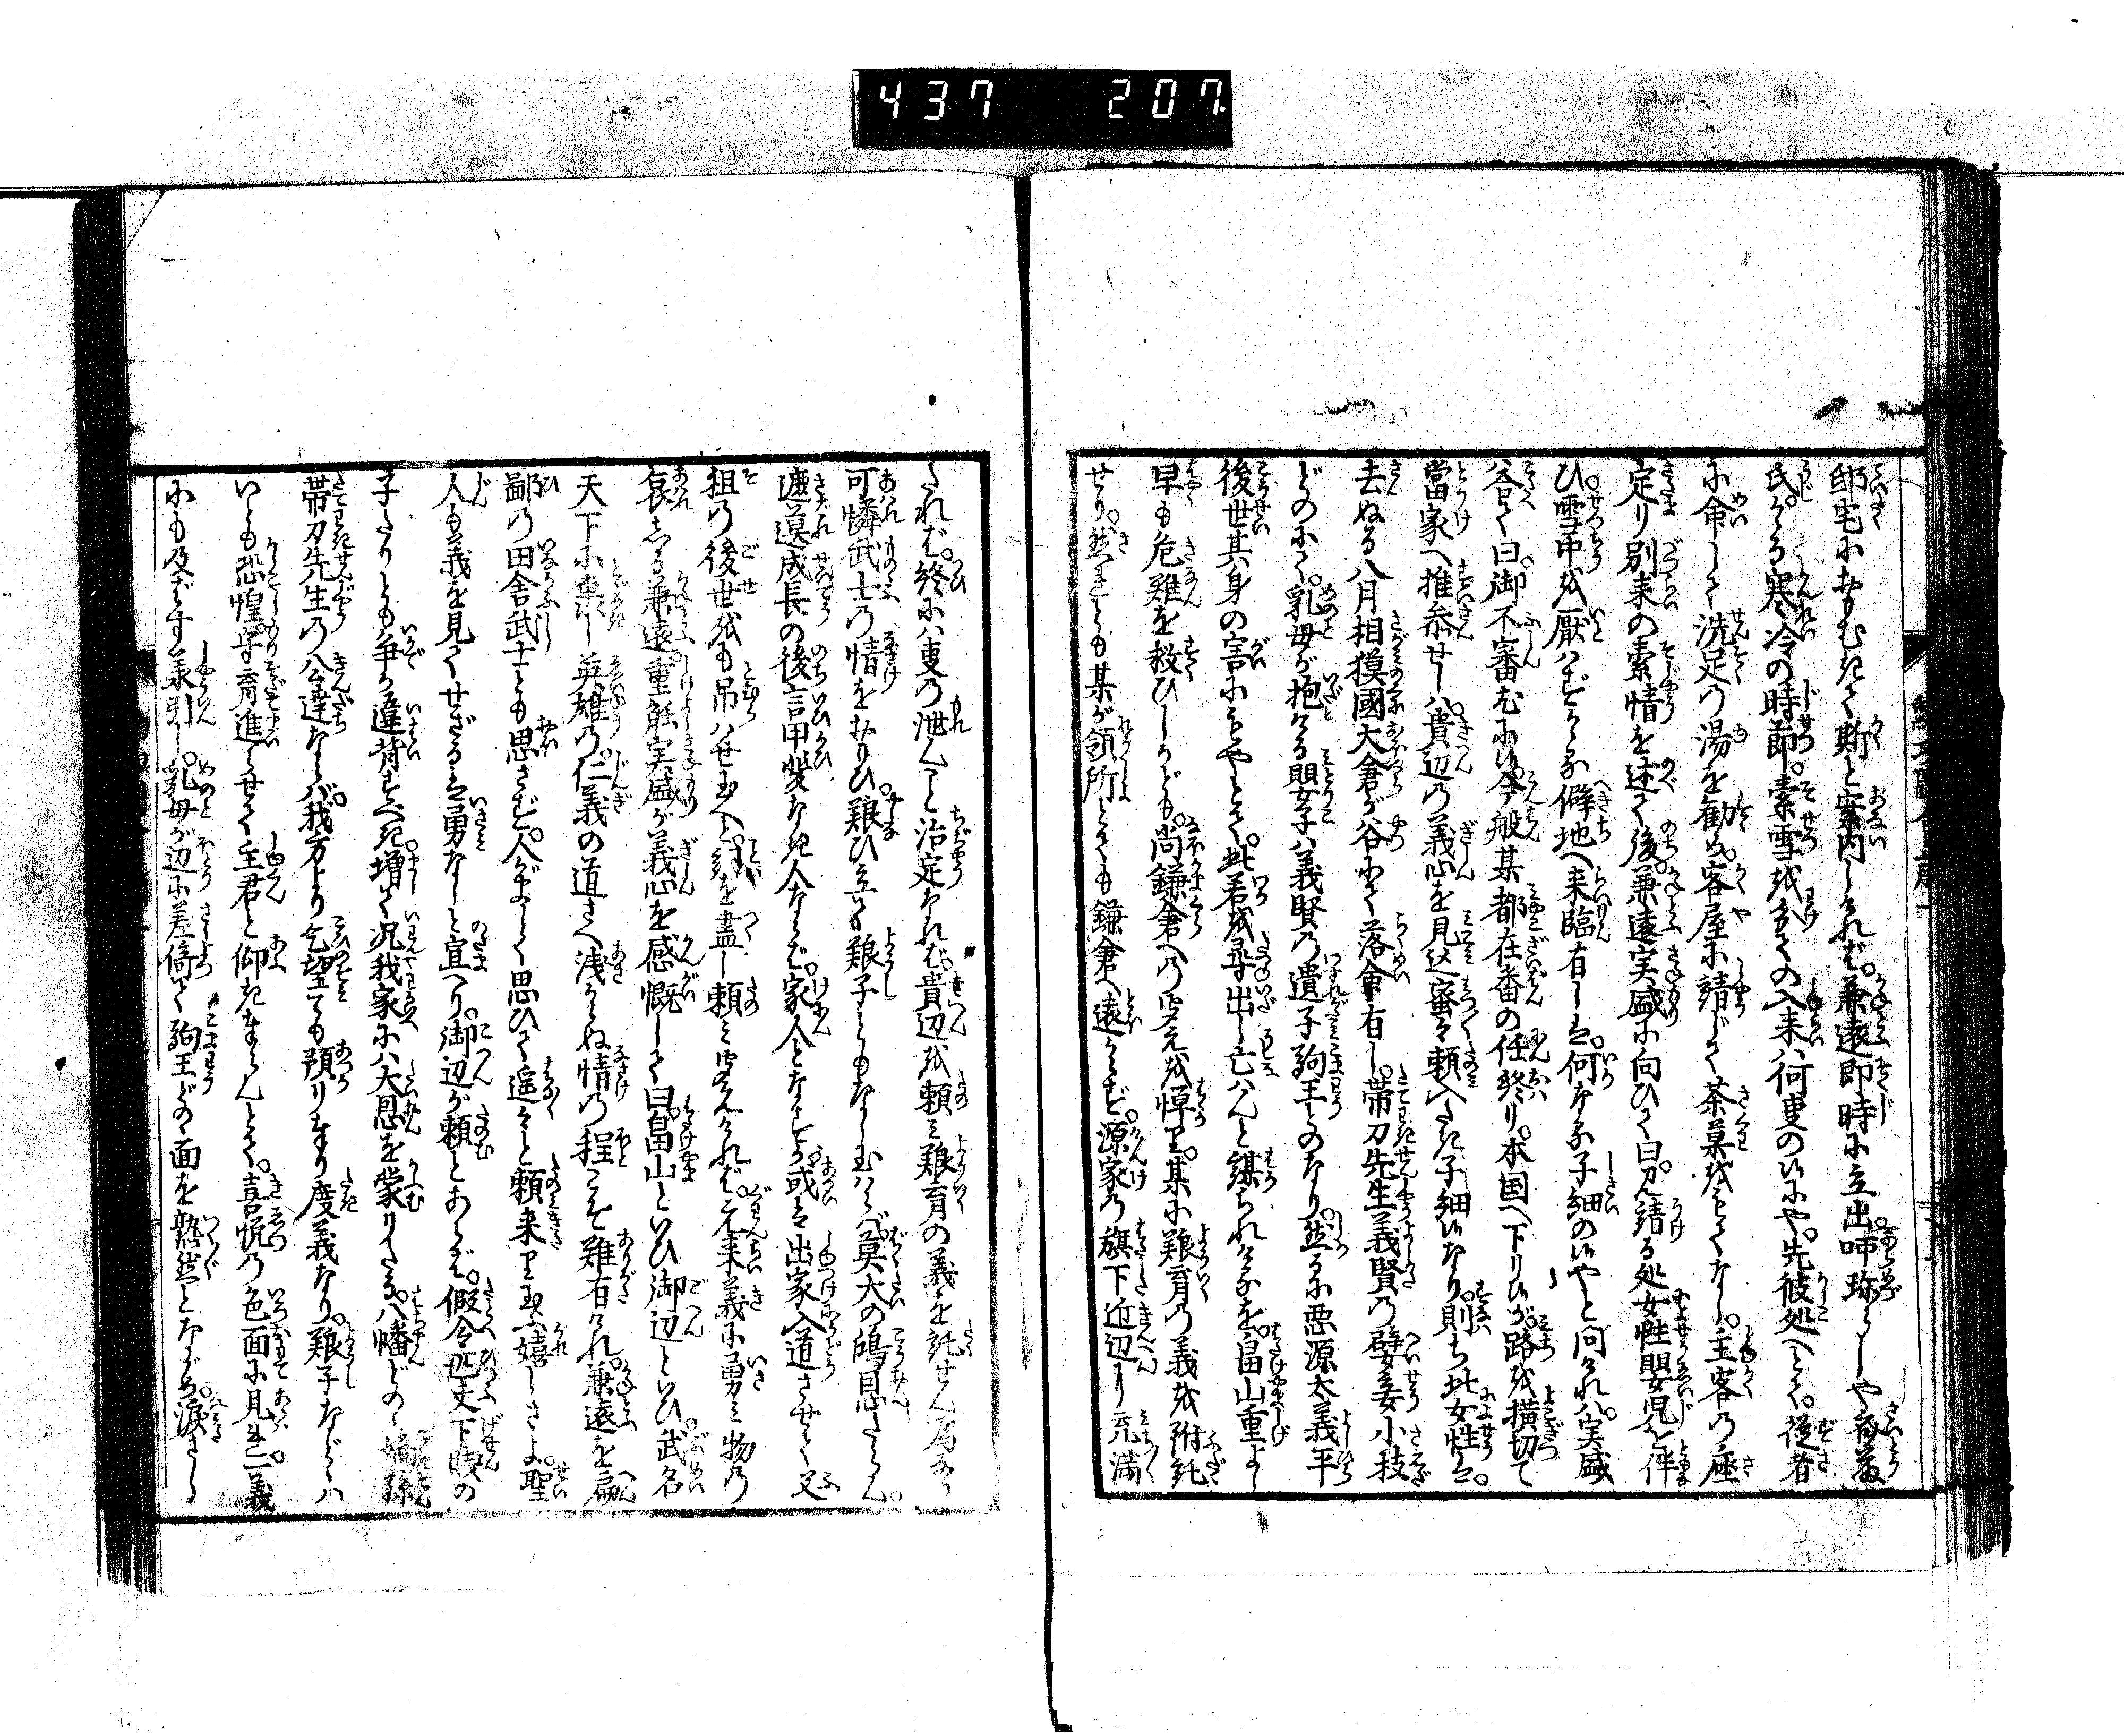 437 207.
邸宅におもむきて斯と案内しければ。兼遠即時に立出。呀珍らしや斎藤
氏。かゝる寒冷の時節。素雪を分ての入来ハ何事のいにや。先彼処へとて。従者
に命して洗足の湯を勧め。客屋に請じて茶菓をもてなし。主客乃座
定り別来の素情を述て後。兼遠実盛に向ひて曰。見請る処女性嬰児を伴
ひ。雪中を厭ハずかゝる僻地へ来臨有しは。何なる子細のいやと問けれハ。実盛
答て曰。御不審むにい。今般某都在番の任終り。本国へ下りいが。路を横切て
當家へ推参せしハ。貴辺乃義心を見込蜜々頼入たき子細いなり。則ち此女性は。
去ぬる八月相摸國大倉が谷にて落命有し。帯刀先生義賢乃嬖妾小枝
どのにて。乳母が抱ける嬰子ハ義賢乃遺子駒王どのなり。然るに悪源太義平
後世其身の害にもやとて。此若を尋出し亡ハんと謀られけるを。畠山重よし
早も危難を救ひしかども。尚鎌倉への聞えを憚り。某に養育乃義を附託
せり。然れとも某が領所とても鎌倉へ遠からず。源家乃旗下近辺に充満
たれば。終にハ事乃泄んと治定なれば。貴辺を頼ミ養育の義を託せん為なり
可憐武士乃情をおもひ。養ひ立て養子ともなし玉ハゞ。莫大の鴻恩たらん。
遮莫成長の後言甲斐なき人ならば。家人となさるゝか。或は出家入道させて父
祖乃後世をも吊ハせ玉へと。詞を盡し頼ミ聞えければ。元来義に勇ミ物乃
哀しる兼遠。重能実盛が義心を感慨して曰。畠山といひ御辺といひ。武名
天下に轟し英雄乃。仁義の道さへ浅からぬ情乃程こそ難有けれ。兼遠を扁
鄙乃田舎武士とも思さず。人がましく思ひて遥々と頼来り玉ふ嬉しさよ。聖
人も義を見てせざるは勇なしと宣へり。御辺が頼とあらば。假令匹夫下賎の
子たりとも争か違背すべき。増て况我家にハ大恩を蒙りたる。八幡どのゝ嫡孫
帯刀先生乃公達ならバ。我方より乞望ても預りまゐり度義なり。養子などゝハ
いとも恐惶。守育進らせて主君と仰きまゐらんとて。喜悦乃色面に見ハれ。一義
にも及ばず承引し。乳母が辺に差倚て駒王どのゝ面を熟然とながめ。涙さし